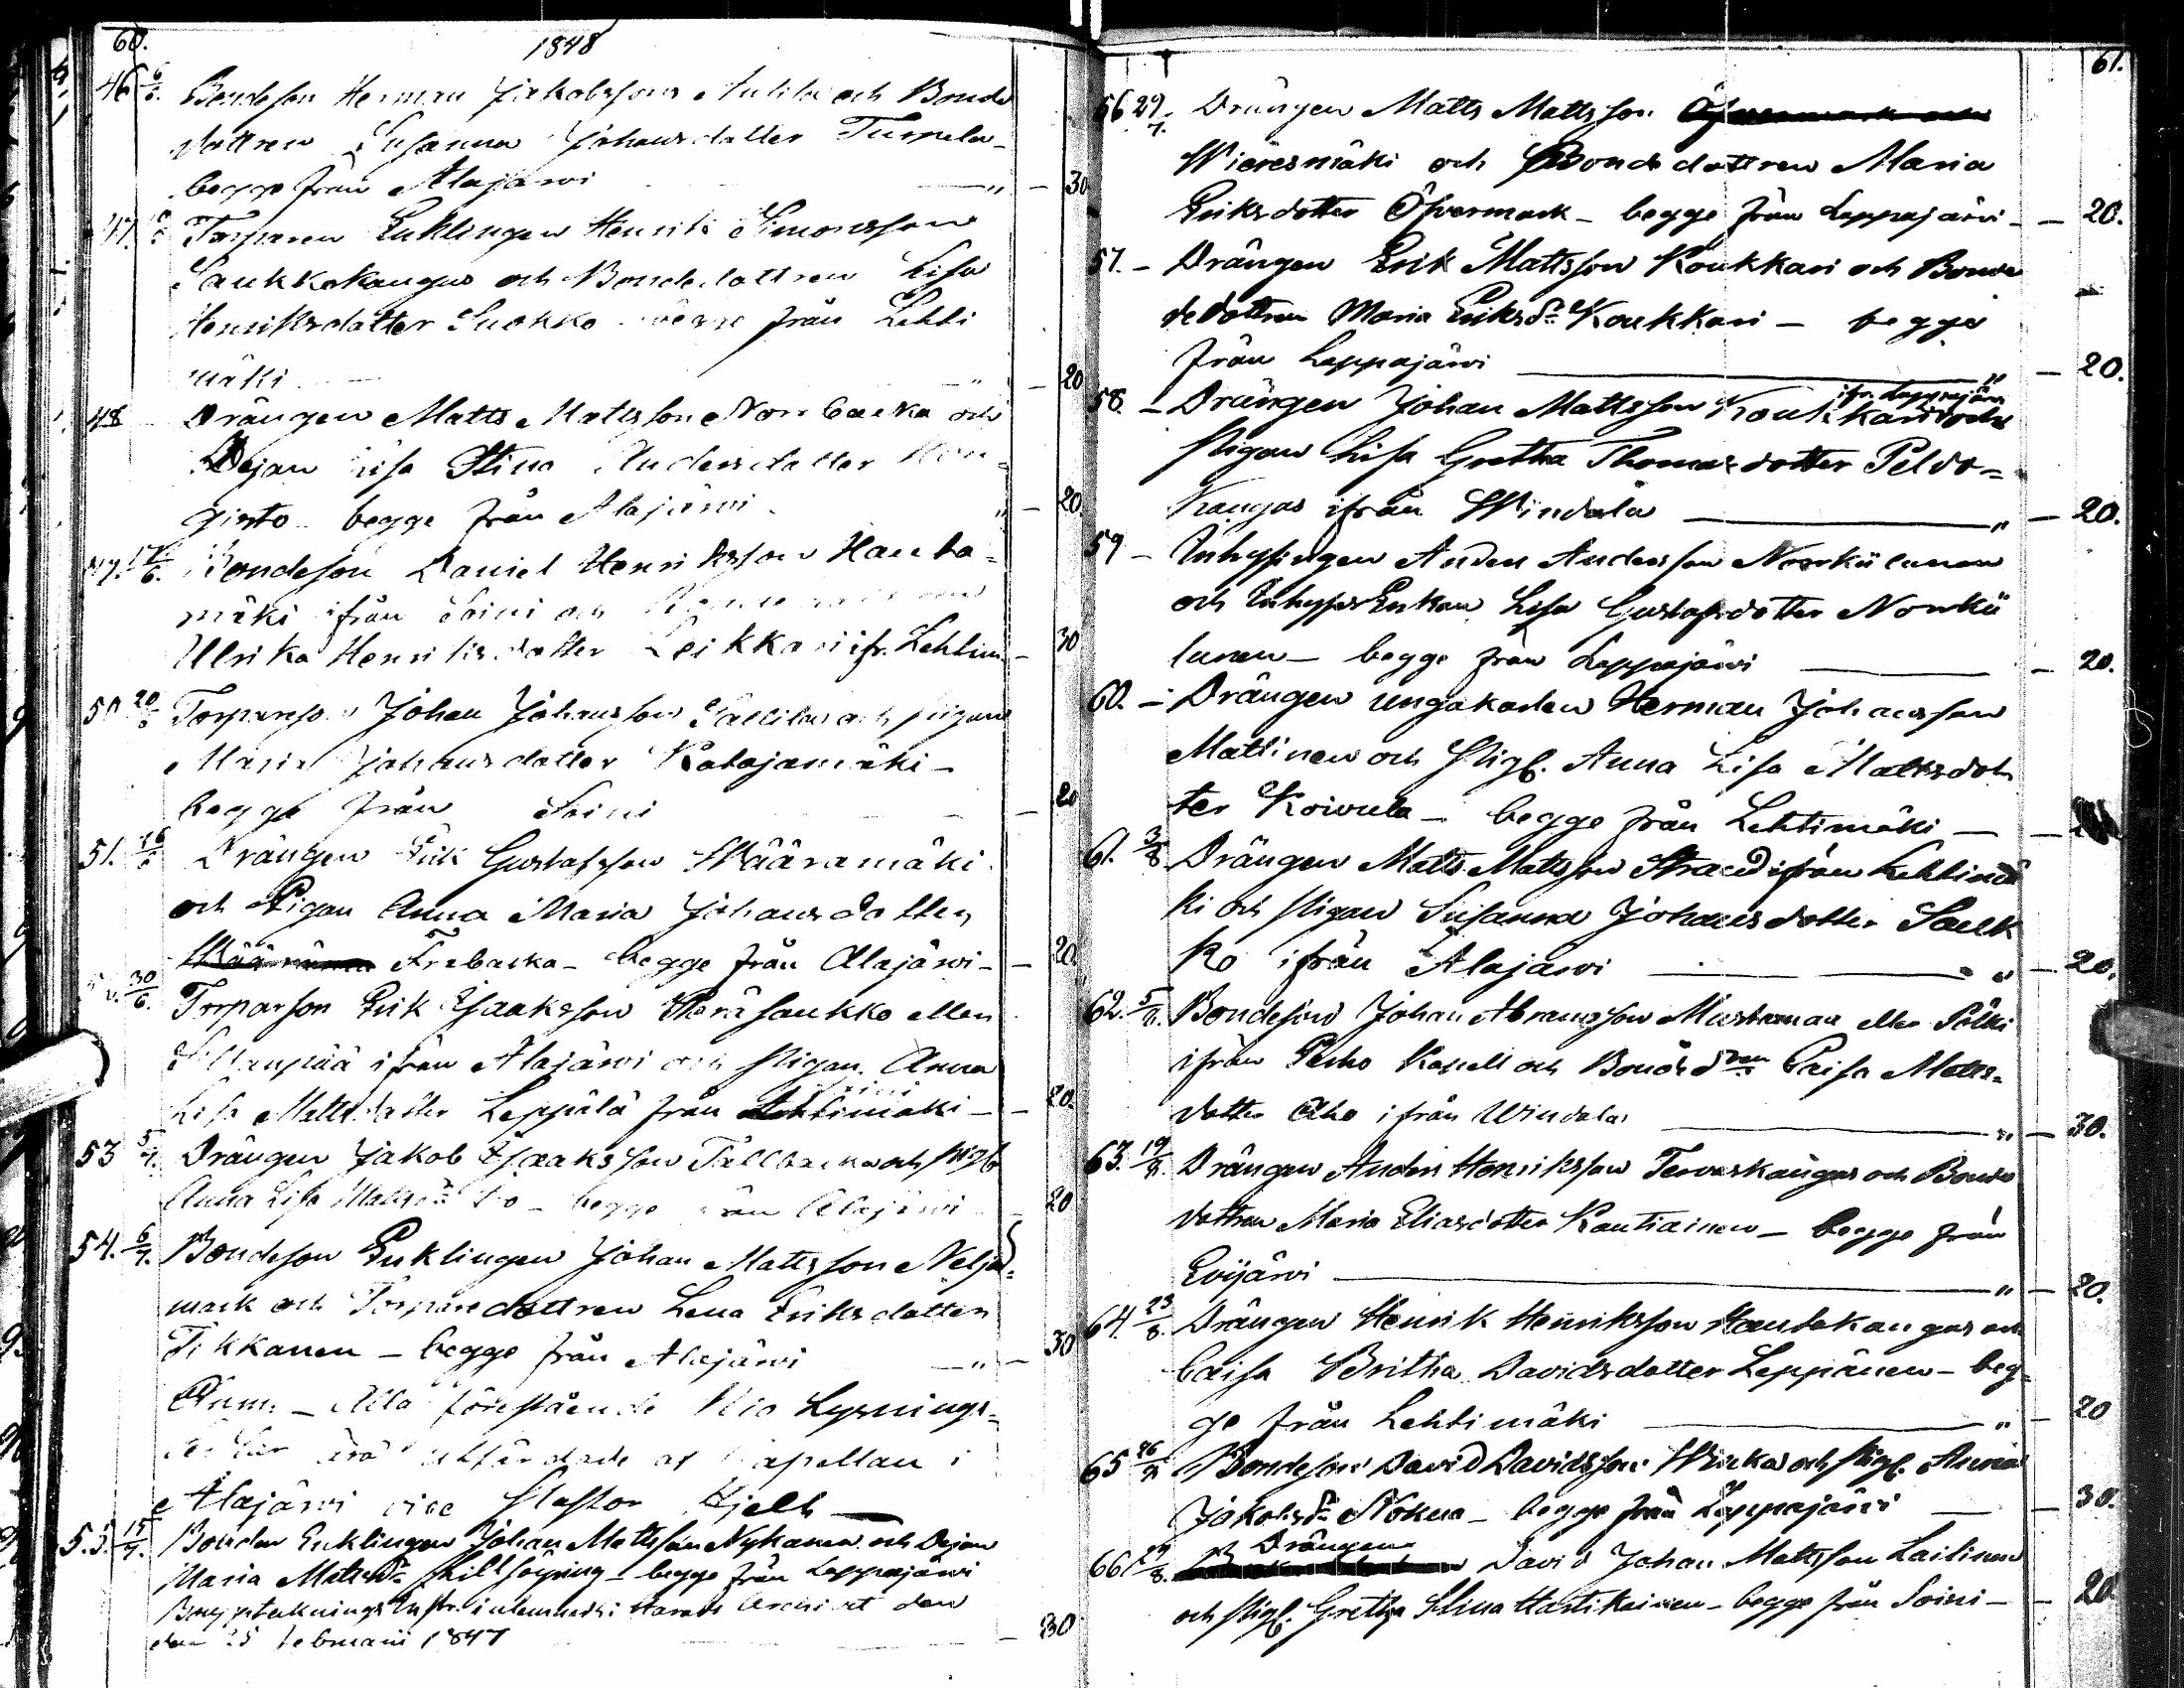 60.
1848
46 6/6. Bondeson Herman Jakobsson Anttila och Bonde
dottren Susanna Johansdotter Turpela
begge från Alajärwi — " — 30
47. Torparen Enklingen Henrik Simonsson
Saukkokangas och Bondedottren Lisa
Henriksdotter Suokko begge från Lehti
mäki — " — 20
48 Drängen Matts Mattsson Norrbacka och
Dejan Lisa Stina Andersdotter Hon=
gisto begge från Alajärwi " — 20
49. 17/6. Bondeson Daniel Henriksson Hauta=
mäki ifrån Soini och
Ulrika Henriksdotter Leikkari ifr. Lehtim — 30
50 20/6 Torpareson Johan Johansson och pigan
Maria Johansdotter Katajamäki —
begge från Soini — 20
51. 26/6 Drängen Erik Gustafsson Määrämäki
och Pigan Anna Maria Johansdotter
Frebacka — begge från Alajärwi — 20.
30/6. Torparson Erik Isaaksson Peräsaukko eller
Sillanpää ifrån Alajärwi och Pigan Anna
Lisa Mattsdotter Leppälä från Soini — 20.
53 5/7. Drängen Jakob Isaksson Tallbacka och Pig.
Anna Lisa Mattsdr — begge från Alajärwi 20
54. 6/7. Bondeson Enklingen Johan Mattsson Nelja=
mark och Torparedottren Lena Eriksdotter
Tikkanen — begge från Alajärwi — " — 30
Anm. — Alla förestående Nio Lysnings=
äro utfärdade af Capellan i
Alajärwi vice Pastor Hjelt —
55. 15/7. Bonden Enklingen Johan Mattsson Nykänen och Dejan
Maria Mattsdr — begge från Lappajärwi
Bouppteknings Instr. inlemnad i Harads Archivet den
den 25 Februarii 1847 — 30
61.
56 29/7. Drängen Matts Mattsson
Wieresmäki och Bondedottren Maria
Eriksdotter Öfvermark — begge från Lappajärwi — 20.
57. — Drängen Erik Mattsson Koukkari och Bonde
dedottren Maria Eriksdr Koukkari — begge
från Lappajärwi — " — 20.
58. — Drängen Johan Mattsson Koukkari ifr. Lappajärwi och
Pigan Lisa Gretha Thomasdotter Peldo=
kangas ifrån Windala — " — 20.
59 — Inhysingen Anders Andersson Norrkülunen
och Inhyses Enkan Lisa Gustafsdotter Norrkü
lunen — begge från Lappajärwi — 20.
60. — Drängen ungakarlen Herman Johansson
Mattinen och Pig. Anna Lisa Mattsdot
ter Koivula — begge från Lehtimäki —
61. 3/8 Drängen Matts Mattsson Strand ifrån Lehtimä
ki och Pigan Susanna Johansdotter Sauk
ko ifrån Alajärwi — " — 20.
62. 5/8. Bondeson Johan Abramsson Mustamaa eller Pölki
ifrån Perho Kapell och Bondedren Caisa Matts=
dotter Aho ifrån Windala — " — 30.
63. 19/8. Drängen Anders Henriksson Tervaskangas och Bonde
dottren Maria Eliasdotter Rautiainen — begge från
Evijärwi — " — 20.
64. 23/8. Drängen Henrik Henriksson Hautakangas och
Caisa Britha Davidsdotter Leppänen — beg=
ge från Lehtimäki — " — 20
65 26/8 Bondeson David Davidsson Wiuka och Pig. Anna
Jakobsdr Nokua — begge från Lappajärwi — 30.
66 27/8. Drängen David Johan Mattsson Laitinen
och Pig. Gretha Stina Hartikainen — begge från Soini — 20